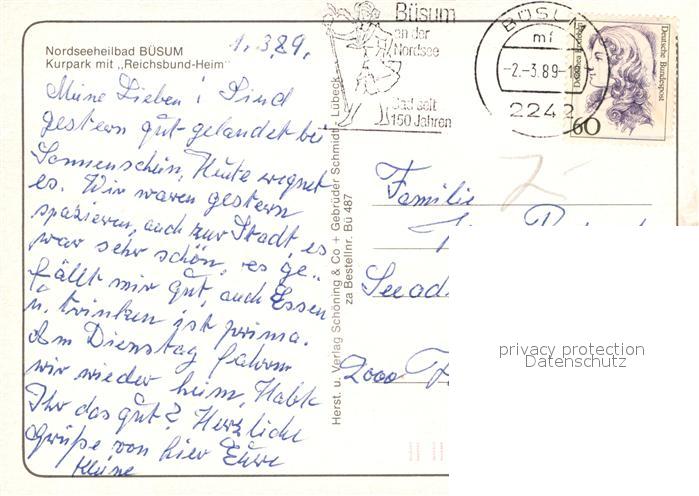 Nordseeheilbad BÜSUM
Kurpark mit „Reichsbund-Heim"
1.3.89.
Meine Lieben! Sind
gestern gut gelandet bei
Sonnenschein, Heute regnet
es. Wir waren gestern
spazieren, auch zur Stadt, es
war sehr schön, es ge-
fällt mir gut, auch Essen
u. trinken ist prima.
Am Dienstag fahren
wir wieder heim, Habt
Ihr das gut? Herzliche
Grüße von hier Eure
Kleine
Herst. u. Verlag Schöning & Co + Gebrüder Schmidt, Lübeck
za Bestellnr. Bü 487
Büsum
an der
Nordsee
Bad seit
150 Jahren
BÜSUM
mf
-2.-3.89-1
2242
Deutsche Bundespost
60
Familie
2000
privacy protection
Datenschutz